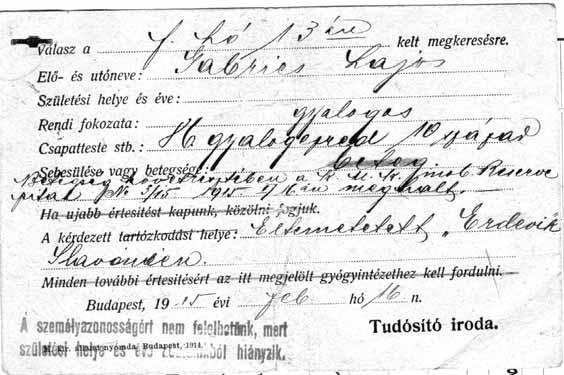 Válasz a f. hó 13 án kelt megkeresésre.
Elő- és utóneve: Gabrics Lajos
Születési helye és éve:
Rendi fokozata: gyalogos
Csapatteste stb.: gyalogezred 10 század
Sebesülése vagy betegsége: beteg
Betegség következtében a K. u. K. mob. Reserve
spital No 3/15 1915 én meghalt.
Ha ujabb értesitést kapunk, közölni fogjuk.
A kérdezett tartózkodási helye: Eltemettetett "Erdevik
Slavonien.
Minden további értesitésért az itt megjelölt gyógyintézethez kell fordulni.
Budapest, 1915 évi feb hó 16 n.
A személyazonosságért nem felelhetünk, mert
születési helye és éve hiányzik.
Tudósító iroda.
M. kir. állami nyomda. Budapest, 1914.